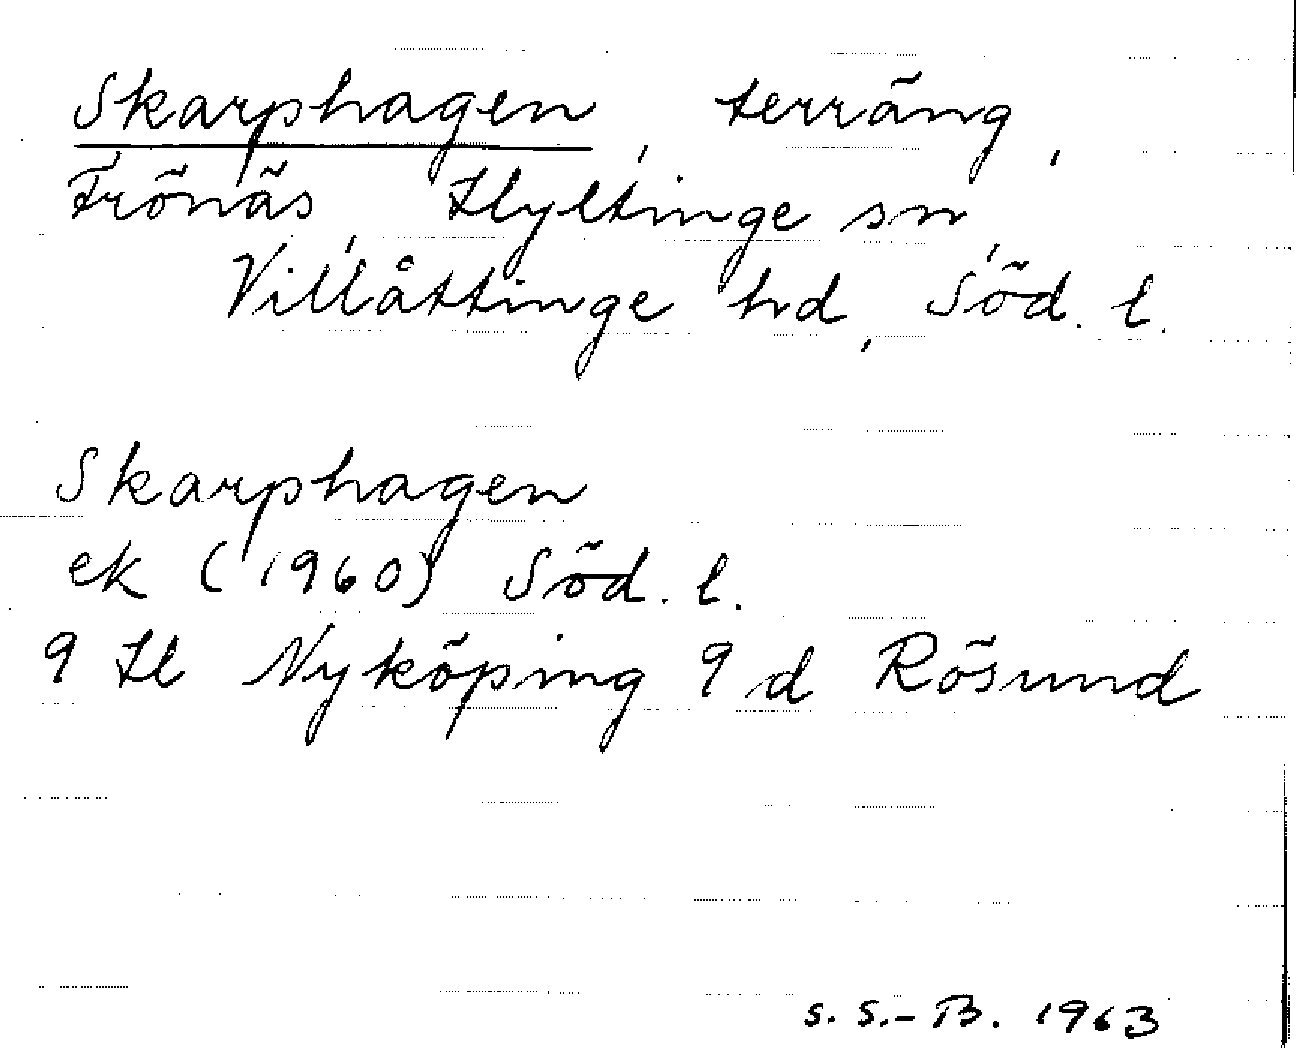 Skarphagen, terräng,
Frönäs, Hyltinge sn,
Villåttinge hd, Söd. l.
Skarphagen
ek (1960) Söd. l.
9 H Nyköping 9 d Rösund
S. S.-B. 1963